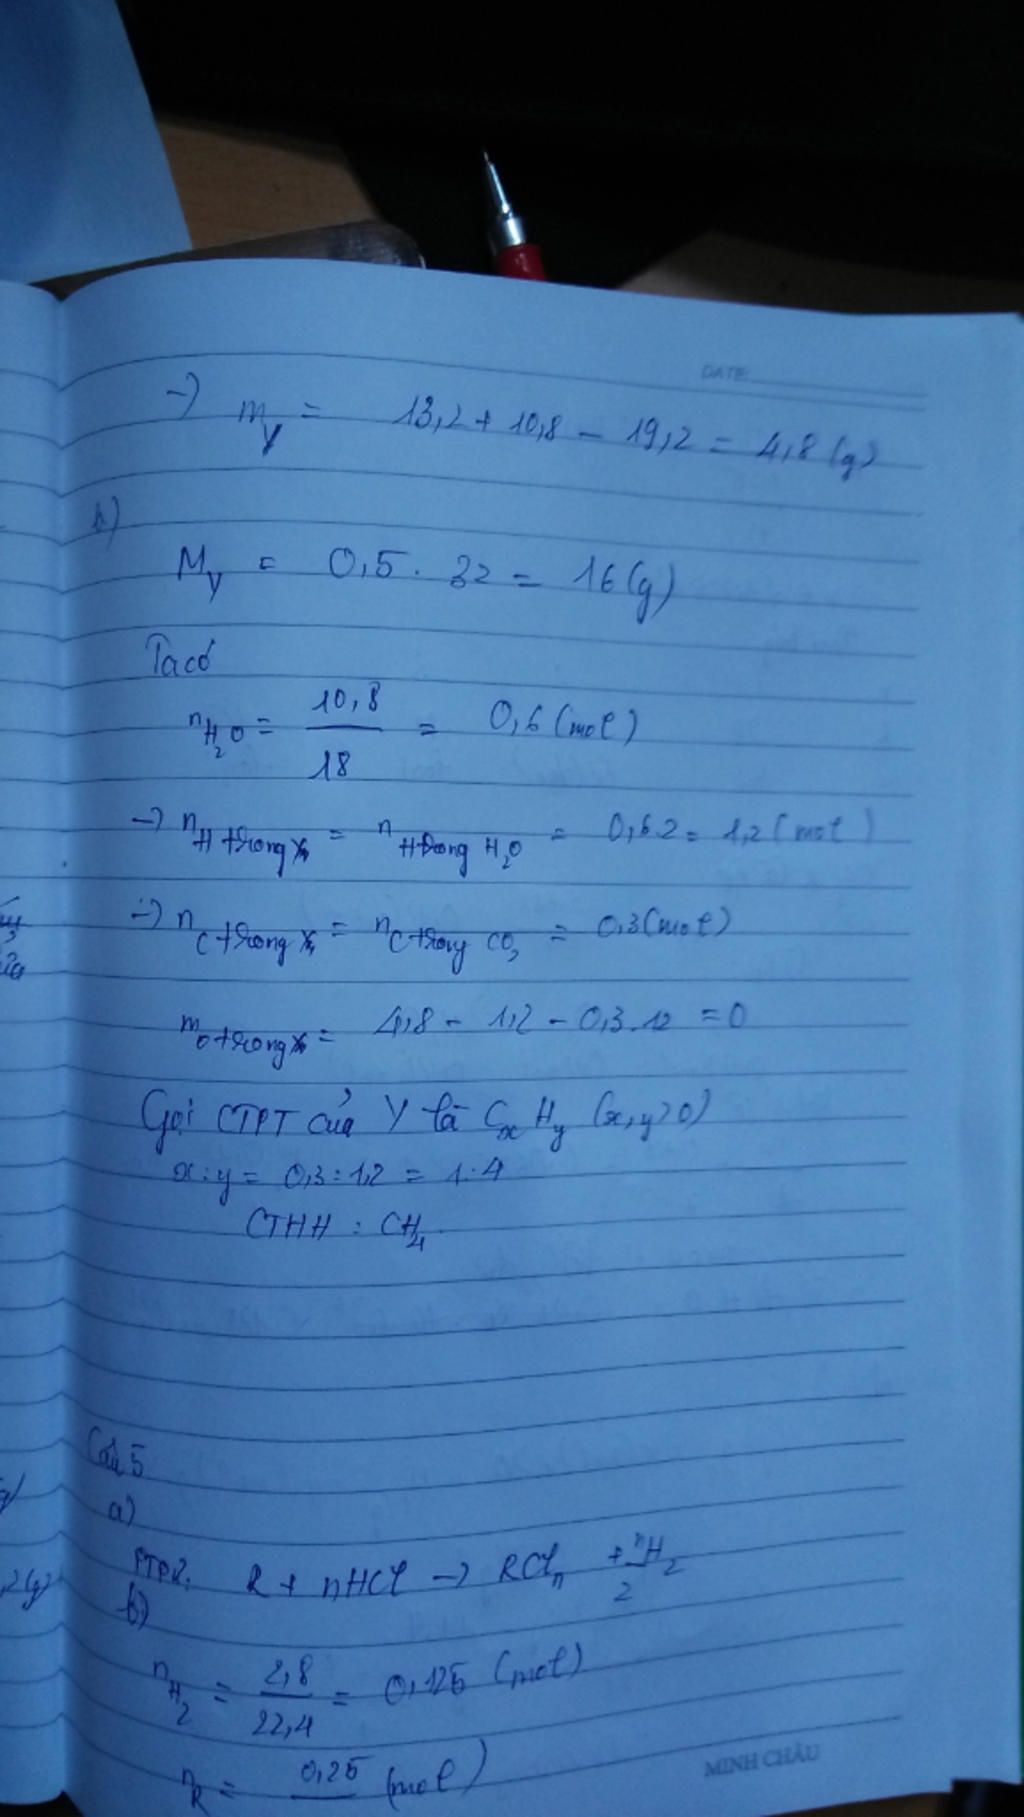 DATE:
-) m_y = 13,2 + 10,8 - 19,2 = 4,8 (g)
b)
M_y = 0,5 . 32 = 16 (g)
Ta có
n_H2O = 10,8 / 18 = 0,6 (mol)
-) n_H trong X = n_H trong H2O = 0,6.2 = 1,2 (mol)
-) n_C trong X = n_C trong CO2 = 0,3 (mol)
m_O trong X = 4,8 - 1,2 - 0,3.12 = 0
Gọi CTPT của Y là CxHy (x,y>0)
x:y = 0,3:1,2 = 1:4
CTHH : CH4
Câu 5
a)
PTPƯ: R + nHCl -> RCln + n/2 H2
b)
n_H2 = 2,8 / 22,4 = 0,125 (mol)
n_R = 0,25 (mol)
MINH CHÂU